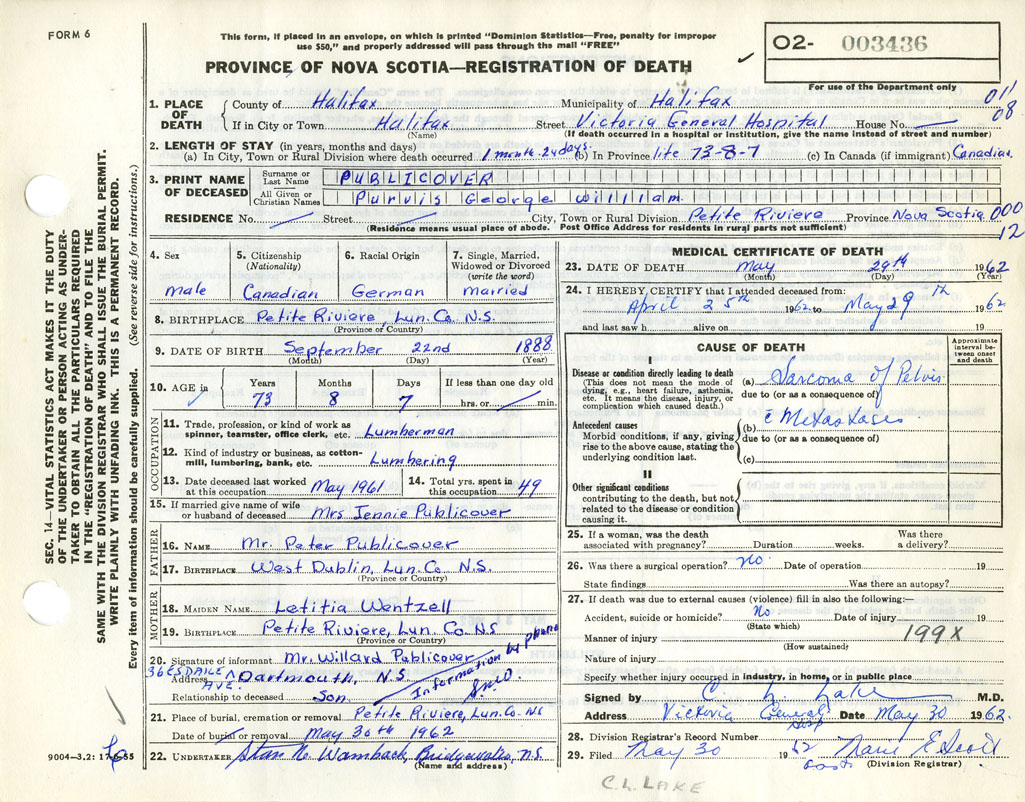 FORM 6
This form, if placed in an envelope, on which is printed "Dominion Statistics—Free, penalty for improper
use $50," and properly addressed will pass through the mail "FREE"
O2- 003436
PROVINCE OF NOVA SCOTIA—REGISTRATION OF DEATH
For use of the Department only
1. PLACE OF DEATH
County of Halifax Municipality of Halifax 011
08
If in City or Town Halifax Street Victoria General Hospital House No.
(Name) (If death occurred in a hospital or institution, give the name instead of street and number)
2. LENGTH OF STAY (in years, months and days)
(a) In City, Town or Rural Division where death occurred 1 month. 24 days. (b) In Province life 73-8-7 (c) In Canada (if immigrant) Canadian.
3. PRINT NAME OF DECEASED
Surname or Last Name PUBLICOVER
All Given or Christian Names Purvis George William.
RESIDENCE No. Street City, Town or Rural Division Petite Riviere Province Nova Scotia 000
12
(Residence means usual place of abode. Post Office Address for residents in rural parts not sufficient)
4. Sex
male
5. Citizenship
(Nationality)
Canadian
6. Racial Origin
German
7. Single, Married,
Widowed or Divorced
(write the word)
married
8. BIRTHPLACE Petite Riviere, Lun. Co. N.S.
(Province or Country)
9. DATE OF BIRTH September 22nd 1888
(Month) (Day) (Year)
10. AGE in
Years Months Days If less than one day old
73 8 7 hrs. or min.
OCCUPATION
11. Trade, profession, or kind of work as
spinner, teamster, office clerk, etc. Lumberman
12. Kind of industry or business, as cotton-
mill, lumbering, bank, etc. Lumbering
13. Date deceased last worked
at this occupation May 1961
14. Total yrs. spent in
this occupation 49
15. If married give name of wife
or husband of deceased Mrs Jennie Publicover
FATHER
16. NAME Mr. Peter Publicover
17. BIRTHPLACE West Dublin, Lun. Co N.S.
(Province or Country)
MOTHER
18. MAIDEN NAME Letitia Wentzell
19. BIRTHPLACE Petite Riviere, Lun. Co. N.S
(Province or Country)
20. Signature of informant Mr. Willard Publicover
Information by phone
36 ESDAILE AVE.
Address Dartmouth, N.S.
Relationship to deceased Son.
21. Place of burial, cremation or removal Petite Riviere, Lun. Co. NS
Date of burial or removal May 30th 1962
22. UNDERTAKER Bridgewater, N.S.
(Name and address)
9004—3.2: 17-6-55
MEDICAL CERTIFICATE OF DEATH
23. DATE OF DEATH May 29th 1962
(Month) (Day) (Year)
24. I HEREBY, CERTIFY that I attended deceased from:
April 25th 1962 to May 29th 1962
and last saw h alive on 19
CAUSE OF DEATH
Approximate
interval be-
tween onset
and death
I
Disease or condition directly leading to death
(This does not mean the mode of
dying, e.g., heart failure, asthenia,
etc. It means the disease, injury, or
complication which caused death.)
(a) Sarcoma of Pelvis
due to (or as a consequence of)
Antecedent causes
Morbid conditions, if any, giving
rise to the above cause, stating the
underlying condition last.
(b) c Metastases
due to (or as a consequence of)
(c)
II
Other significant conditions
contributing to the death, but not
related to the disease or condition
causing it.
25. If a woman, was the death
associated with pregnancy? Duration weeks. Was there
a delivery?
26. Was there a surgical operation? no Date of operation 19
State findings Was there an autopsy?
27. If death was due to external causes (violence) fill in also the following:—
Accident, suicide or homicide? No Date of injury 19
(State which)
Manner of injury 199X
(How sustained)
Nature of injury
Specify whether injury occurred in industry, in home, or in public place
Signed by C. L. Lake M.D.
Address Victoria General Hosp Date May 30 1962.
28. Division Registrar's Record Number
29. Filed May 30 1962 Marie E Scott
(Division Registrar)
C.L. LAKE
SEC. 14—VITAL STATISTICS ACT MAKES IT THE DUTY
OF THE UNDERTAKER OR PERSON ACTING AS UNDER-
TAKER TO OBTAIN ALL THE PARTICULARS REQUIRED
IN THE "REGISTRATION OF DEATH" AND TO FILE THE
SAME WITH THE DIVISION REGISTRAR WHO SHALL ISSUE THE BURIAL PERMIT.
WRITE PLAINLY WITH UNFADING INK. THIS IS A PERMANENT RECORD.
Every item of information should be carefully supplied. (See reverse side for instructions.)